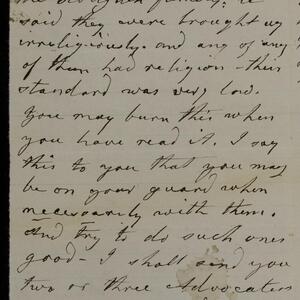 said they were brought up
irreligiously. and any of any
of them had religion - their
standard was very low.
You may burn this when
you have read it. I say
this to you that you may
be on your guard when
necessarily with them.
And try to do such ones
good - I shall send you
two or three Advocates